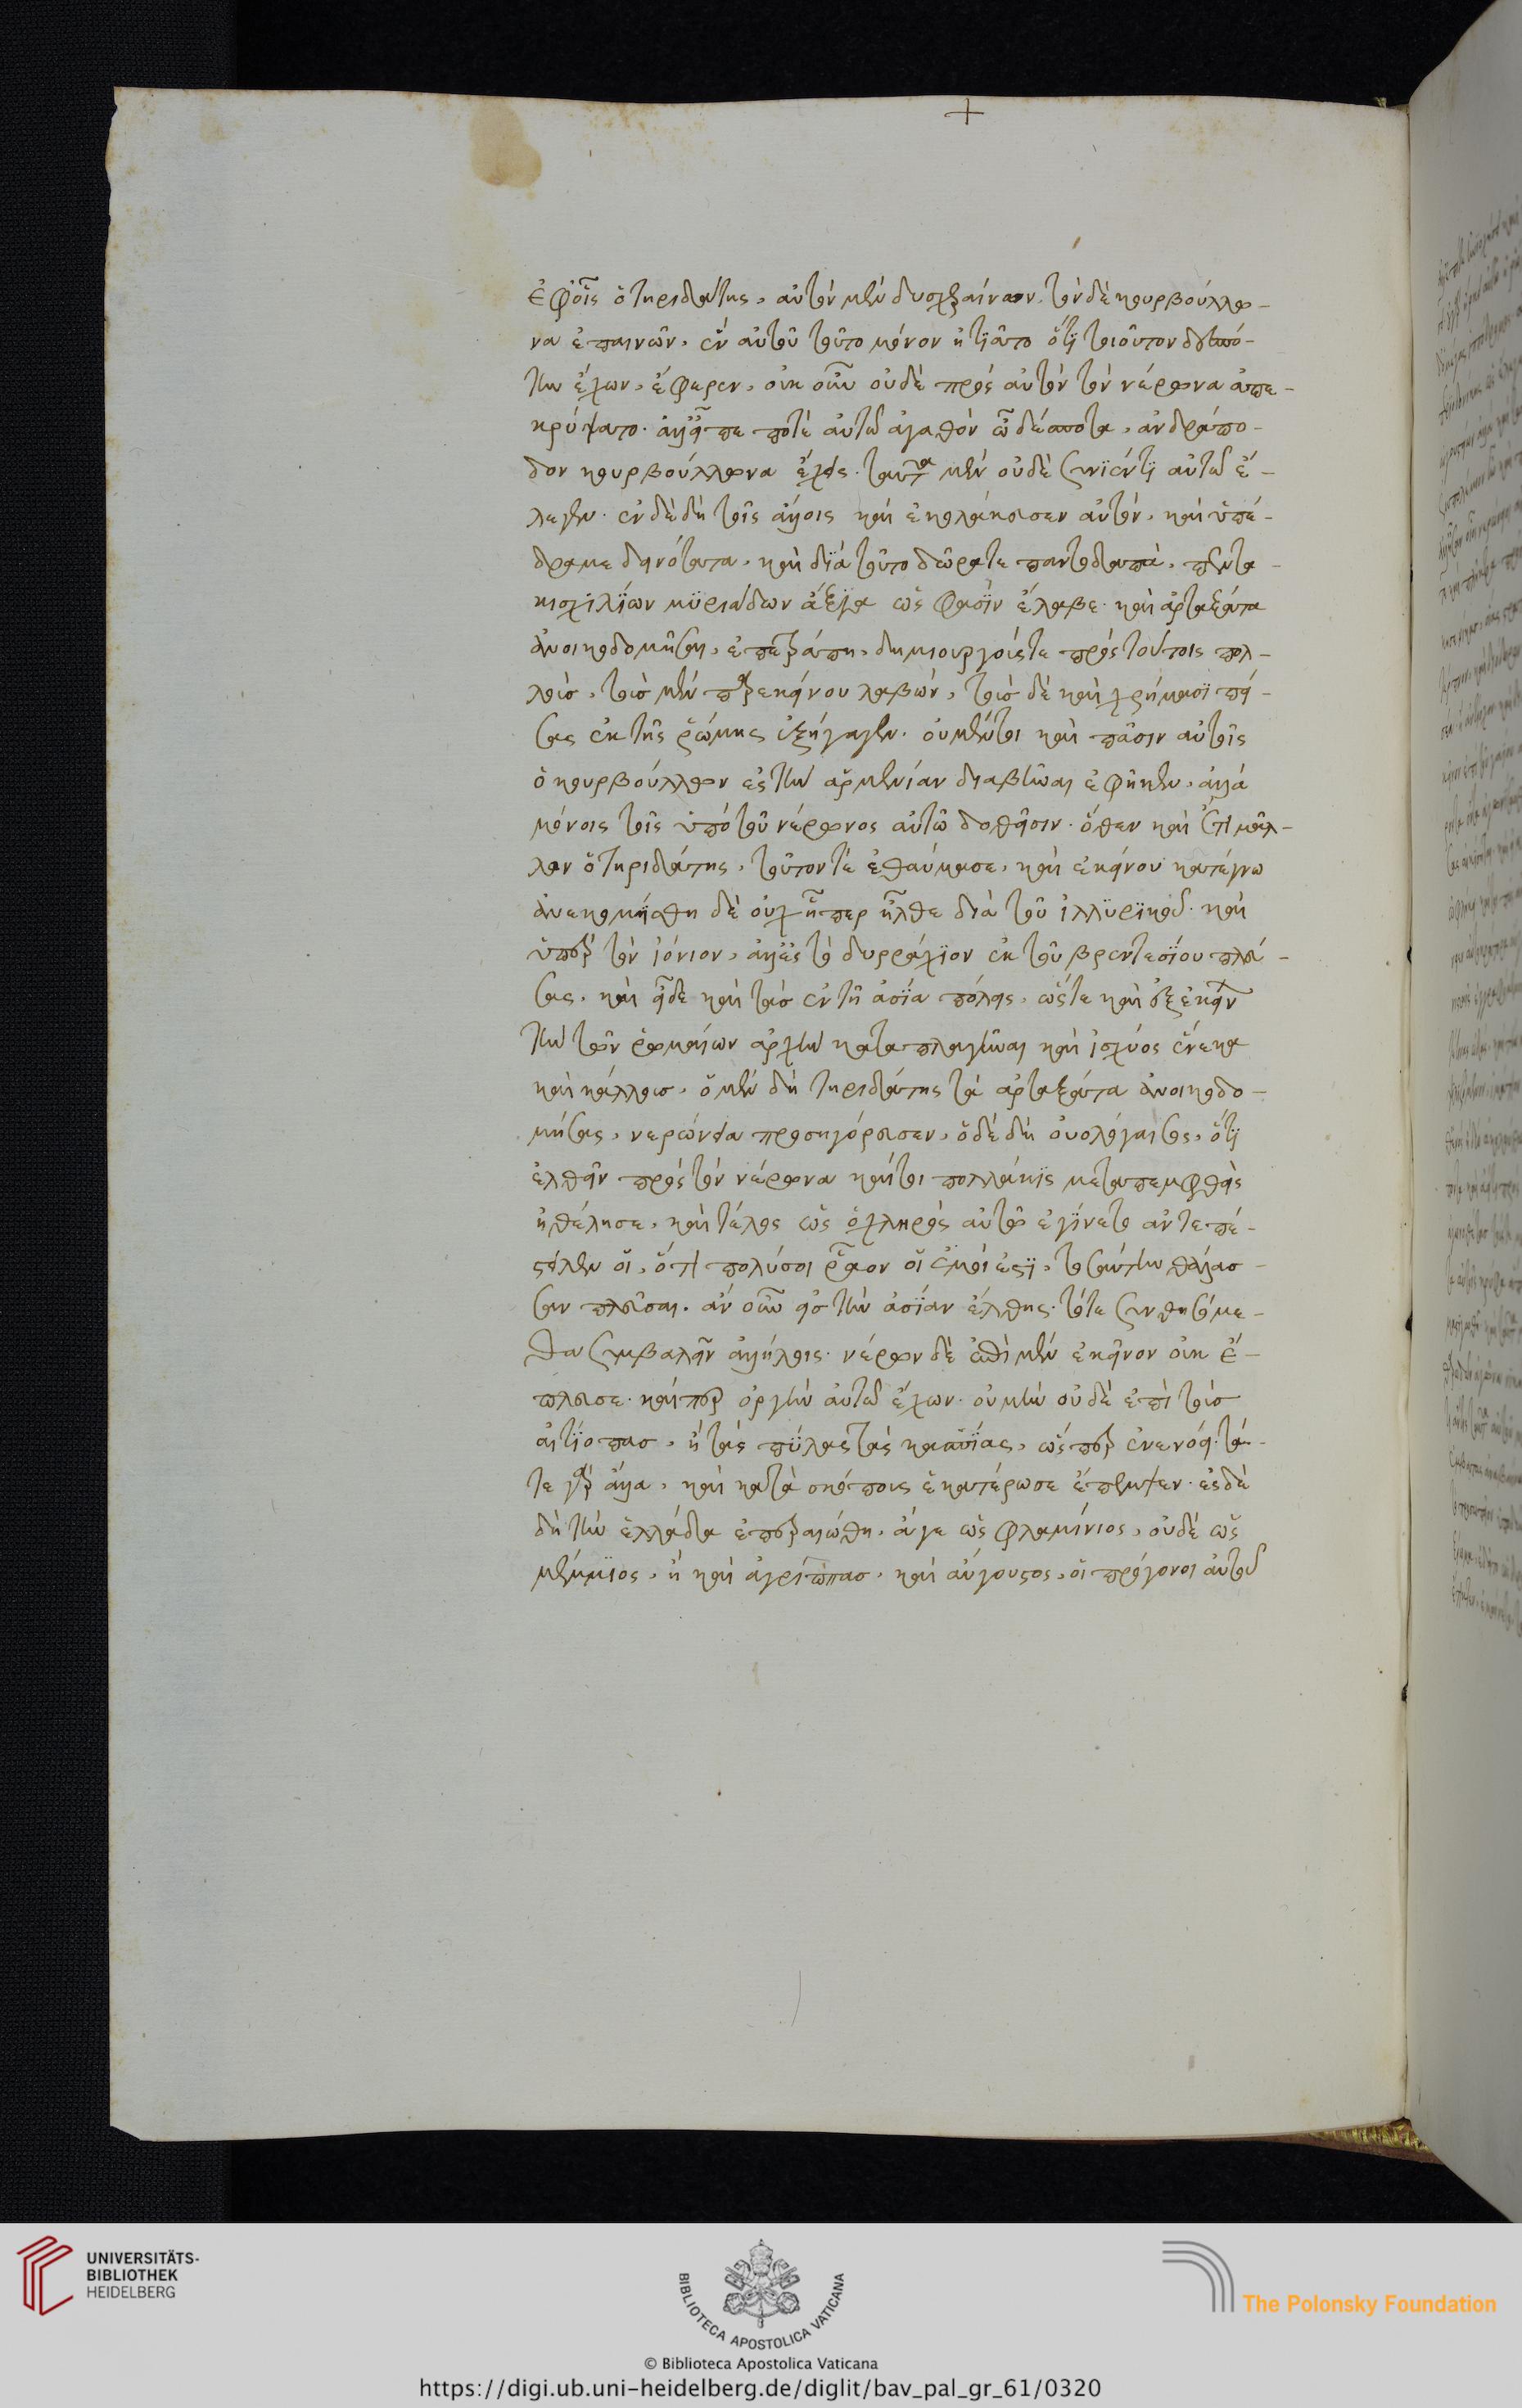 +
ἐφ' οἷς ὁ τηριδάτης, αὐτὸν μὲν δυσχεραίνων, τὸν δὲ κουρβούλλω-
να ἐπαινῶν, ἓν αὐτοῦ τοῦτο μόνον ἠτιᾶτο ὅτι τοιοῦτον δεσπό-
την ἔχων, ἔφερεν, οὐκ οὖν οὐδὲ πρὸς αὐτὸν τὸν νέρωνα ἀπε-
κρύψατο. ἀλλ' εἶπε ποτὲ αὐτῷ ἀγαθὸν ὦ δέσποτα, ἀνδράπο-
δον κουρβούλλωνα ἔχεις. ταῦτα μὲν οὐδὲ συνιέντι αὐτῷ ἔ-
λεγεν. ἐν δὲ δὴ τοῖς ἄλλοις καὶ ἐκολάκευσεν αὐτὸν, καὶ ὑπέ-
δραμε δεινότατα, καὶ διὰ τοῦτο δῶρα τε παντοδαπὰ, πεντα
κισχιλίων μυριάδων ἄξια ὥς φασιν ἔλαβε. καὶ ἀρταξάτα
ἀνοικοδομῆσαι, ἐπετράπη, δημιουργούς τε πρὸς τούτοις πολ-
λοὺς, τοὺς μὲν παρ' ἐκείνου λαβὼν, τοὺς δὲ καὶ χρήμασι πεί-
σας ἐκ τῆς ῥώμης ἐξήγαγεν. οὐ μέντοι καὶ πᾶσιν αὐτοῖς
ὁ κουρβούλλων ἐς τὴν ἀρμενίαν διαβῆναι ἐφῆκεν, ἀλλὰ
μόνοις τοῖς ὑπὸ τοῦ νέρωνος αὐτῶ δοθεῖσιν. ὅθεν καὶ ἔτι μᾶλ-
λον ὁ τηριδάτης, τοῦτον τὲ ἐθαύμασε, καὶ ἐκείνου κατέγνω
ἀνεκομίσθη δὲ οὐχ ᾗπερ ἦλθε διὰ τοῦ ἰλλυρικοῦ. καὶ
ὑπὲρ τὸν ἰόνιον, ἀλλ' ἐς τὸ δυρράχιον ἐκ τοῦ βρεντεσίου πλεύ-
σας. καὶ εἶδε καὶ τὰς ἐν τῆ ἀσία πόλεις, ὥς τε καὶ ἐξ ἐκείνων
τὴν τῶν ῥωμαίων ἀρχὴν καταπλαγῆναι καὶ ἰσχύος ἕνεκα
καὶ κάλλους, ὁ μὲν δὴ τηριδάτης τὰ ἀρταξάτα ἀνοικοδο-
μήσας, νερώνεια προσηγόρευσεν, ὁ δὲ δὴ οὐολόγαισος, οὔτι
ἐλθεῖν πρὸς τὸν νέρωνα καίτοι πολλάκις μεταπεμφθεὶς
ἠθέλησε, καὶ τέλος ὡς ὀχληρὸς αὐτῶ ἐγίνετο ἀντεπέ-
στειλεν οἱ, ὅτι πολύ σοι ῥᾷον οἱ ἐμοί ἐστι, τοσαύτην θάλασ-
σαν πλεῦσαι. ἂν οὖν εἰς τὴν ἀσίαν ἔλθης. τότε συνθησόμε-
θα συμβαλεῖν ἀλλήλοις. νέρων δὲ ἐπὶ μὲν ἐκεῖνον οὐκ ἔ-
πλευσε. καίπερ ὀργὴν αὐτῷ ἔχων. οὐ μὴν οὐδὲ ἐπὶ τοὺς
αἰτίοπας, ἢ τὰς πύλας τὰς κασπίας, ὥς περ ἐνενόει. τά-
τε γὰρ ἄλλα, καὶ κατὰ σκόπους ἑκατέρωσε ἔπεμψεν. ἐς δὲ
δὴ τὴν ἑλλάδα ἐπεραιώθη. ἅ γε ὡς φλαμίνιος, οὐδὲ ὡς
μέμμιος, ἢ καὶ ἀγρίππας, καὶ αὔγουστος, οἱ πρόγονοι αὐτοῦ
UNIVERSITÄTS-
BIBLIOTHEK
HEIDELBERG
BIBLIOTECA APOSTOLICA VATICANA
The Polonsky Foundation
© Biblioteca Apostolica Vaticana
https://digi.ub.uni-heidelberg.de/diglit/bav_pal_gr_61/0320